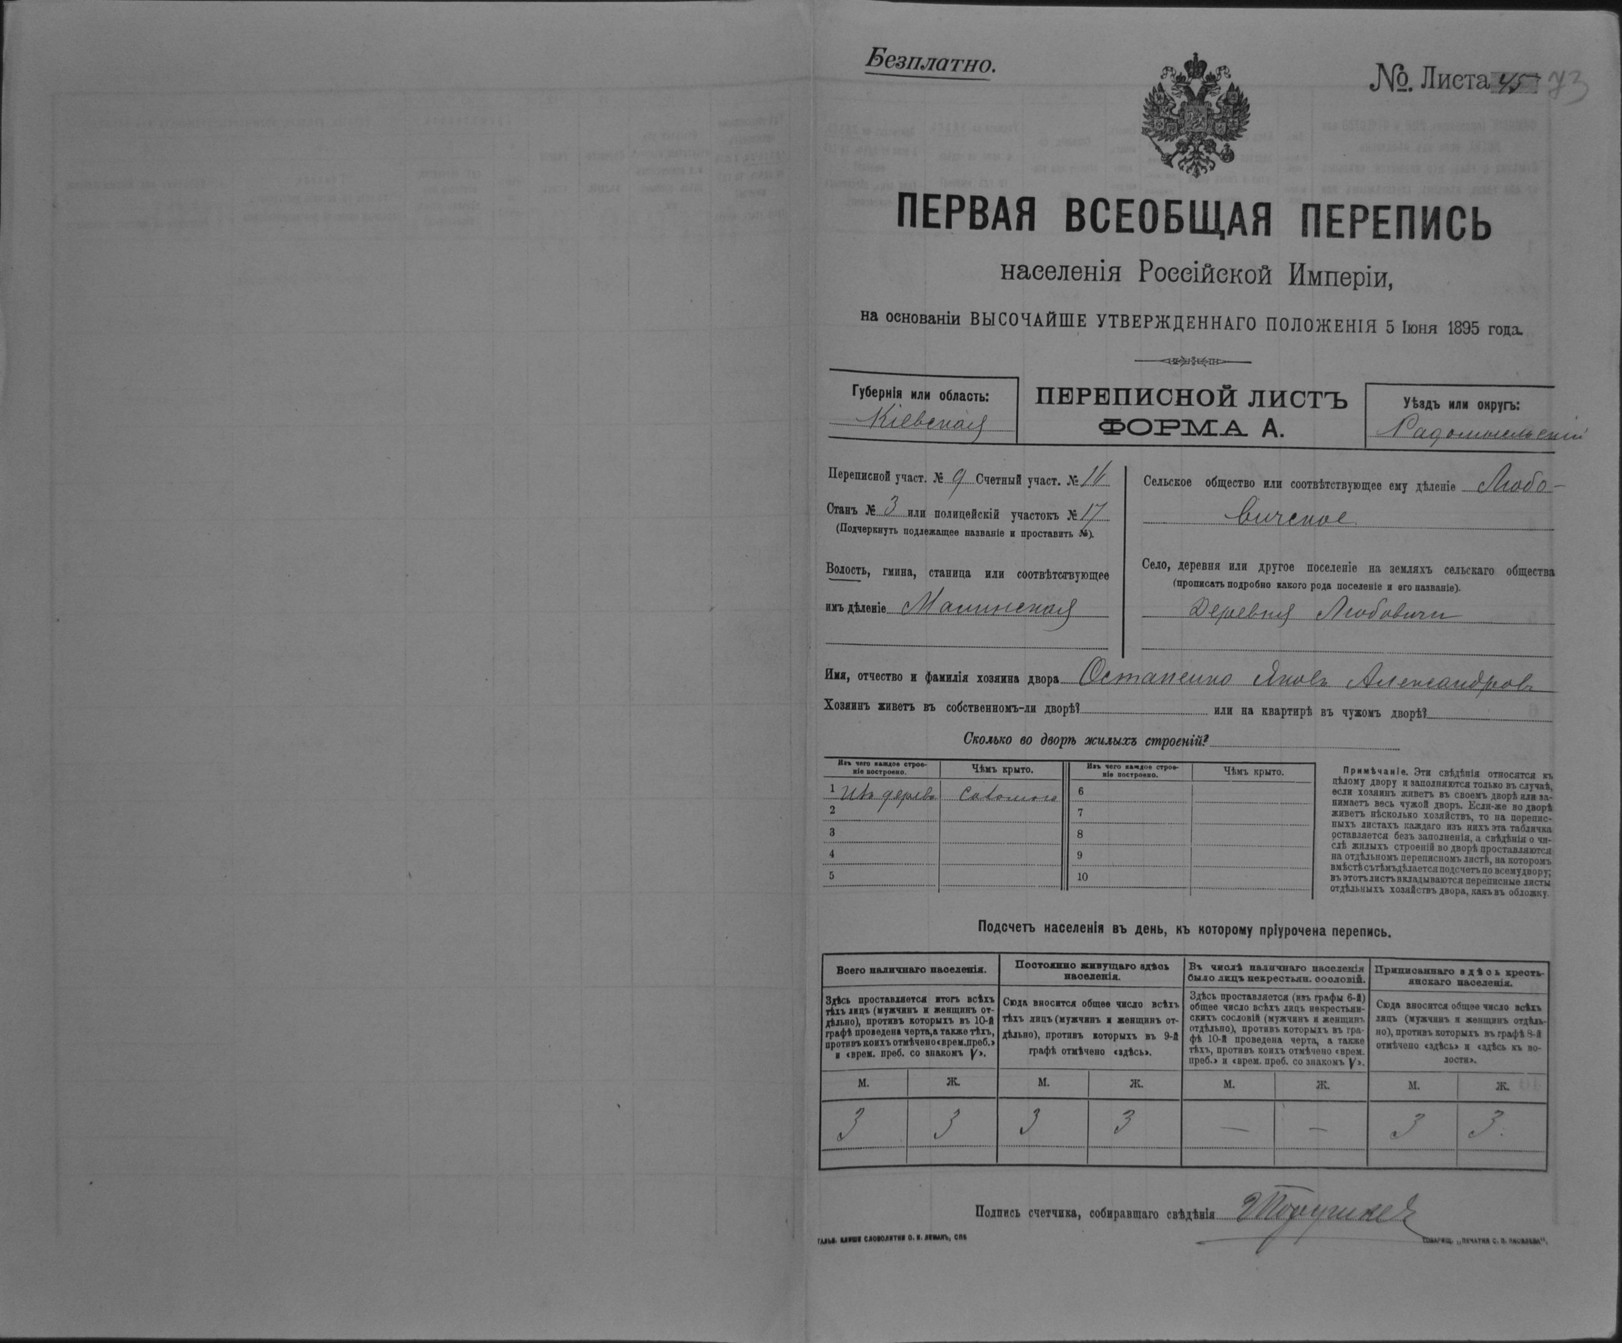 Безплатно.
№. Листа 45 73
ПЕРВАЯ ВСЕОБЩАЯ ПЕРЕПИСЬ
населенія Россійской Имперіи,
на основаніи ВЫСОЧАЙШЕ УТВЕРЖДЕННАГО ПОЛОЖЕНІЯ 5 Іюня 1895 года.
Губернія или область:
Кіевская
ПЕРЕПИСНОЙ ЛИСТЪ
ФОРМА А.
Уѣздъ или округъ:
Радомысльскій
Переписной участ. № 9 Счетный участ. № 16
Станъ № 3 или полицейскій участокъ № 17
(Подчеркнуть подлежащее названіе и проставить №).
Волость, гмина, станица или соотвѣтствующее
имъ дѣленіе Малинская
Сельское общество или соотвѣтствующее ему дѣленіе Любо-
вичское.
Село, деревня или другое поселеніе на земляхъ сельскаго общества
(прописать подробно какого рода поселеніе и его названіе).
Деревня Любовичи
Имя, отчество и фамилія хозяина двора Остапенко Яковъ Александровъ
Хозяинъ живетъ въ собственномъ-ли дворѣ? или на квартирѣ въ чужомъ дворѣ?
Сколько во дворѣ жилыхъ строеній?
Изъ чего каждое строе-
ніе построено.
Чѣмъ крыто.
1 Изъ дерева соломою
2
3
4
5
Изъ чего каждое строе-
ніе построено.
Чѣмъ крыто.
6
7
8
9
10
Примѣчаніе. Эти свѣдѣнія относятся къ
цѣлому двору и заполняются только въ случаѣ,
если хозяинъ живетъ въ своемъ дворѣ или за-
нимаетъ весь чужой дворъ. Если-же во дворѣ
живетъ нѣсколько хозяйствъ, то на перепис-
ныхъ листахъ каждаго изъ нихъ эта табличка
оставляется безъ заполненія, а свѣдѣнія о чи-
слѣ жилыхъ строеній во дворѣ проставляются
на отдѣльномъ переписномъ листѣ, на которомъ
вмѣстѣ съ тѣмъ дѣлается подсчетъ по всему двору;
въ этотъ листъ вкладываются переписные листы
отдѣльныхъ хозяйствъ двора, какъ въ обложку.
Подсчетъ населенія въ день, къ которому пріурочена перепись.
Всего наличнаго населенія.
Здѣсь проставляется итогъ всѣхъ
тѣхъ лицъ (мужчинъ и женщинъ от-
дѣльно), противъ которыхъ въ 10-й
графѣ проведена черта, а также тѣхъ,
противъ коихъ отмѣчено «врем. преб.»
и «врем. преб. со знакомъ V».
М. Ж.
3 3
Постоянно живущаго здѣсь
населенія.
Сюда вносится общее число всѣхъ
тѣхъ лицъ (мужчинъ и женщинъ от-
дѣльно), противъ которыхъ въ 9-й
графѣ отмѣчено «здѣсь».
М. Ж.
3 3
Въ числѣ наличнаго населенія
было лицъ некрестьян. сословій.
Здѣсь проставляется (изъ графы 6-й)
общее число всѣхъ лицъ некрестьян-
скихъ сословій (мужчинъ и женщинъ
отдѣльно), противъ которыхъ въ гра-
фѣ 10-й проведена черта, а также
тѣхъ, противъ коихъ отмѣчено «врем.
преб.» и «врем. преб. со знакомъ V».
М. Ж.
— —
Приписаннаго здѣсь кресть-
янскаго населенія.
Сюда вносится общее число всѣхъ
лицъ (мужчинъ и женщинъ отдѣль-
но), противъ которыхъ въ графѣ 8-й
отмѣчено «здѣсь» и «здѣсь къ во-
лости».
М. Ж.
3 3.
Подпись счетчика, собиравшаго свѣдѣнія